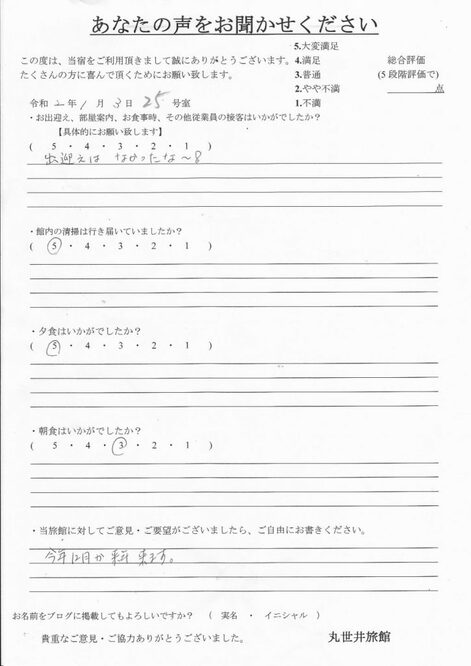 あなたの声をお聞かせください
この度は、当宿をご利用頂きまして誠にありがとうございます。
たくさんの方に喜んで頂くためにお願い致します。
5.大変満足
4.満足
3.普通
2.やや不満
1.不満
総合評価
(5段階評価で)
点
令和 2年 1月 3日 25号室
・お出迎え、部屋案内、お食事時、その他従業員の接客はいかがでしたか?
【具体的にお願い致します】
( 5 ・ 4 ・ 3 ・ 2 ・ 1 )
出迎えは なかったな~
・館内の清掃は行き届いていましたか?
( 5 ・ 4 ・ 3 ・ 2 ・ 1 )
・夕食はいかがでしたか?
( 5 ・ 4 ・ 3 ・ 2 ・ 1 )
・朝食はいかがでしたか?
( 5 ・ 4 ・ 3 ・ 2 ・ 1 )
・当旅館に対してご意見・ご要望がございましたら、ご自由にお書きください。
今年12月か来年 来ます。
お名前をブログに掲載してもよろしいですか? ( 実名 ・ イニシャル )
貴重なご意見・ご協力ありがとうございました。
丸世井旅館